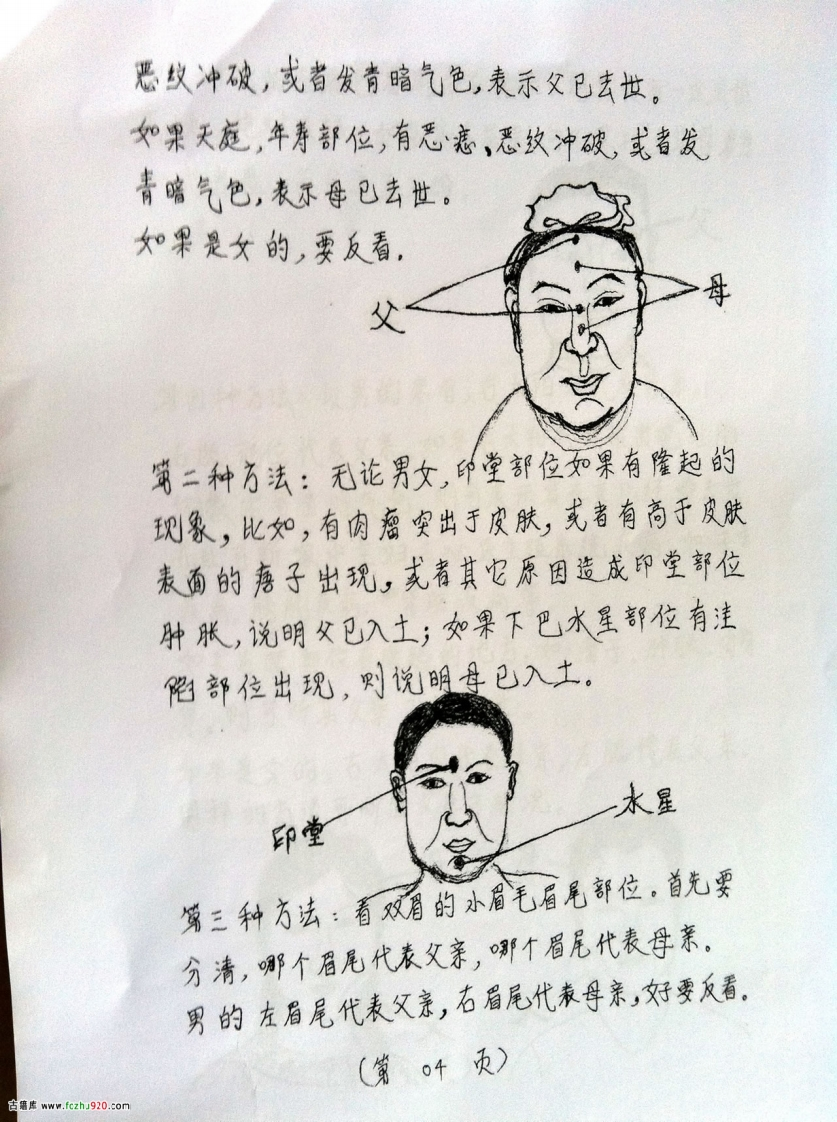 恶纹冲破，或者发青暗气色，表示父已去世。
如果天庭，年寿部位，有恶痣、恶纹冲破，或者发
青暗气色，表示母已去世。
如果是女的，要反看。
父
母
第二种方法：无论男女，印堂部位如果有隆起的
现象，比如，有肉瘤突出于皮肤，或者有高于皮肤
表面的痦子出现，或者其它原因造成印堂部位
肿胀，说明父已入土；如果下巴水星部位有洼
陷部位出现，则说明母已入土。
印堂
水星
第三种方法：看双眉的小眉毛眉尾部位。首先要
分清，哪个眉尾代表父亲，哪个眉尾代表母亲。
男的左眉尾代表父亲，右眉尾代表母亲，女子要反看。
（第 04 页）
古籍库 www.fczhu920.com